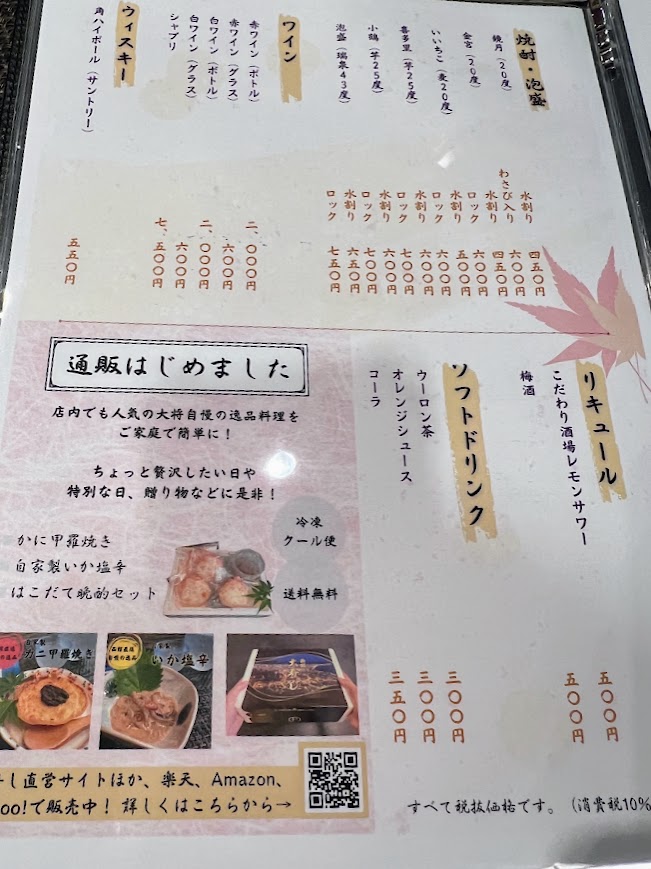 焼酎・泡盛
鏡月（20度）
金宮（20度）
いいちこ（麦20度）
喜多里（芋25度）
小鶴（芋25度）
泡盛（瑞泉43度）
水割り
わさび入り
水割り
ロック
水割り
ロック
水割り
ロック
水割り
ロック
水割り
ロック
四五〇円
六〇〇円
四五〇円
六〇〇円
五〇〇円
六〇〇円
六〇〇円
七〇〇円
六〇〇円
七〇〇円
六五〇円
七五〇円
ワイン
赤ワイン（ボトル）
赤ワイン（グラス）
白ワイン（ボトル）
白ワイン（グラス）
シャブリ
二、〇〇〇円
六〇〇円
二、〇〇〇円
六〇〇円
七、五〇〇円
ウィスキー
角ハイボール（サントリー）
五五〇円
リキュール
こだわり酒場レモンサワー
梅酒
五〇〇円
五〇〇円
ソフトドリンク
ウーロン茶
オレンジジュース
コーラ
三〇〇円
三〇〇円
三五〇円
通販はじめました
店内でも人気の大将自慢の逸品料理を
ご家庭で簡単に！
ちょっと贅沢したい日や
特別な日、贈り物などに是非！
冷凍
クール便
送料無料
かに甲羅焼き
自家製いか塩辛
はこだて晩酌セット
自家製
カニ甲羅焼き
いか塩辛
し直営サイトほか、楽天、Amazon、
oo!で販売中！ 詳しくはこちらから→
すべて税抜価格です。（消費税10%